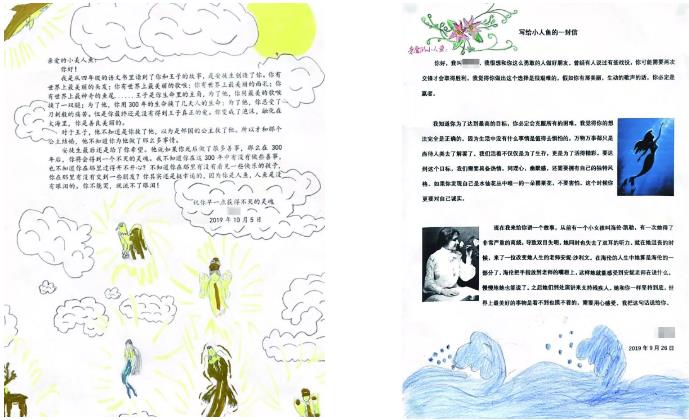 亲爱的小美人鱼:
你好!
我是从四年级的语文书里读到了你和王子的故事,是安徒生创造了你。你有
世界上最美丽的头发;你有世界上最美丽的歌喉;你有世界上最美丽的面孔;你
有世界上最神奇的鱼尾……王子是你生命里的主角,为了他,你用最美的歌喉
换了一双腿;为了他,你用300年的生命换了几十人的生命;为了他,你忍受了
刀刺般的痛苦。但是你最终还是没有得到王子真正的爱。你变成了泡沫,融化在
大海里,你是善良美丽的。
对于王子,他不知道是你救了他,以为是邻国的公主救了他,所以才和那个
公主结婚,他不知道你为他做了那么多事情。
安徒生最后还是给了你希望。他说如果你死后做了很多善事,那么在300
年后,你将会得到一个不灭的灵魂。我不知道你在这300年中有没有做些善事,
也不知道你在那里过得开不开心?不知道你在那里有没有看见一些快乐的孩子,
你在那里有没有受到一些创发?你其实还是挺幸运的,因为你是人鱼,人鱼是没
有眼泪的。你不能哭,就流不了眼泪!
祝你早一点获得不灭的灵魂
2019年10月5日
写给小人鱼的一封信
亲爱的小人鱼:
你好,我叫
,我很想和你这么勇敢的人做好朋友。曾经有人说过有些战役,你可能需要两次
交锋才会取得胜利。我觉得你做出这个选择是挺艰难的,假如你有那美丽、生动的歌声的话,你必定是
赢者。
我知道你为了达到最高的目标,你必定会克服所有的困难。我觉得你的想
法完全是正确的。因为生活中没有什么事情是值得去惧怕的。万物万事都只是
由待人类去了解罢了。我们活着不仅仅是为了生存,更是为了活得精彩。要达
到这个目标,我们需要具备热情、同理心、幽默感,还需要拥有自己的独特风
格。如果你发现自己是水仙花丛中唯一的一朵罂粟花,不要害怕,这个时候你
更要对自己诚实。
现在我来给你讲一个故事。从前有一个小女孩叫海伦·凯勒,有一次她得了
非常严重的高烧,导致双目失明,她同时也失去了双耳的听力。就在她沮丧的时
候,来了一位改变她人生的老师安妮·沙利文。在海伦的人生中她算是海伦的一
部分了。海伦把手指放到老师的嘴唇上,这样她就能感受到安妮老师在说什么。
慢慢地她也留读了。之后她们到处演讲来支持残疾人。她和你一样坚持到底。世
界上最美好的事物是看不到也摸不着的,需要用心感受。我把这句话送给你。
2019年9月26日